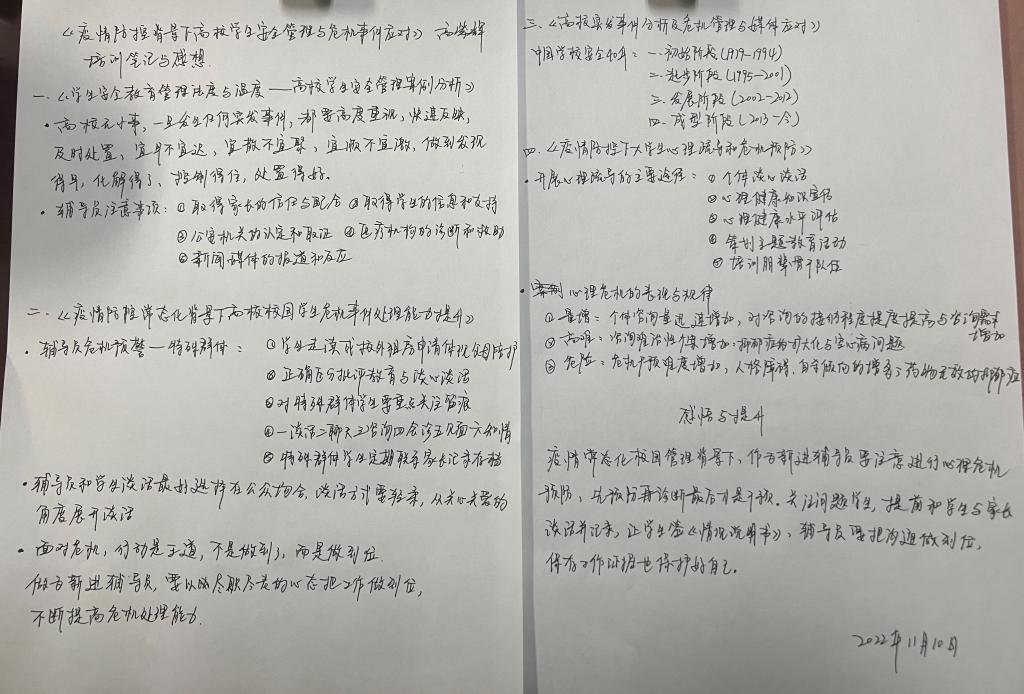 《疫情防控背景下高校学生安全管理与危机事件应对》
培训笔记与感想
一、《学生安全教育管理法度与温度——高校学生安全管理案例分析》
· 高校无小事，一旦发生任何突发事件，都要高度重视，快速反映，
及时处置，宜早不宜迟，宜散不宜聚，宜顺不宜激，做到发现
得早，化解得了，控制得住，处置得好。
· 辅导员注意事项：①取得家长的信任与配合 ②取得学生的信息和支持
③公安机关的认定和取证 ④医疗机构的诊断和救助
⑤新闻媒体的报道和反应
二、《疫情防控常态化背景下高校校园学生危机事件处理能力提升》
· 辅导员危机预警—特殊群体：①学生走读或校外租房申请体现公自防护
②正确区分批评教育与谈心谈话
③对特殊群体学生要重点关注留痕
④一谈话二聊天三咨询四会诊五见面六知情
⑤特殊群体学生定期联系家长记录存档
· 辅导员和学生谈话最好选择在公众场合，谈话方式要轻柔，从关心关爱的
角度展开谈话
· 面对危机，行动是王道，不是做到了，而是做到位.
做为新进辅导员，要以的尽职尽责的心态把工作做到位，
不断提高危机处理能力.
三、《高校突发事件分析及危机管理与媒体应对》
中国学校安全40年：一.初始阶段(1979-1994)
二.起步阶段(1995-2001)
三.发展阶段(2002-2012)
四.成型阶段(2013-今)
四、《疫情防控下大学生心理疏导和危机预防》
· 开展心理疏导的主要途径：①个体谈心谈话
②心理健康知识宣传
③心理健康水平评估
④策划主题教育活动
⑤培训朋辈骨干队伍
· 心理危机的表现与规律
①量增：个体咨询量迅速增加，对咨询的接纳程度提度提高与咨询需求
增加
②高难：咨询难治性个案增加：抑郁症扩大化与空心病问题
③危险：危机干预难度增加，人格障碍、自杀倾向的增多；药物无效的抑郁症
感悟与提升
疫情常态化校园管理背景下，作为新进辅导员要注意进行心理危机
预防，先预防再诊断最后才是干预。关注问题学生，提前和学生与家长
谈话并记录，让学生签《情况说明书》，辅导员要把沟通做到位，
保存工作证据也保护好自己。
2022年11月10日